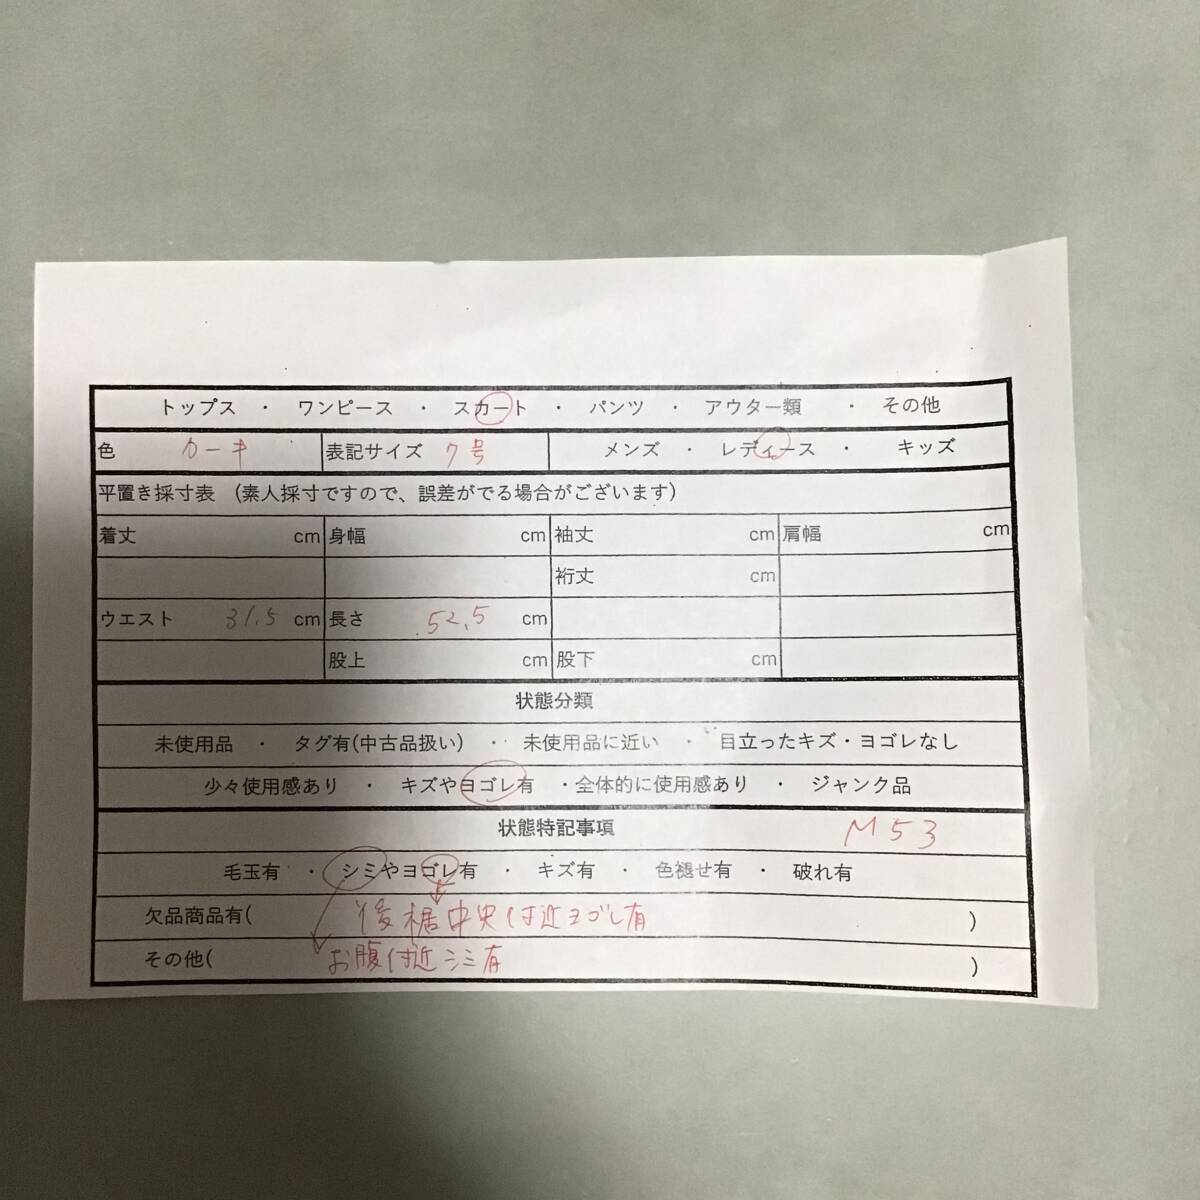 トップス ・ ワンピース ・ スカート ・ パンツ ・ アウター類 ・ その他
色 カーキ 表記サイズ 7号 メンズ ・ レディース ・ キッズ
平置き採寸表 (素人採寸ですので、誤差がでる場合がございます)
着丈 cm 身幅 cm 袖丈 cm 肩幅 cm
裄丈 cm
ウエスト 31.5 cm 長さ 52.5 cm
股上 cm 股下 cm
状態分類
未使用品 ・ タグ有(中古品扱い) ・ 未使用品に近い ・ 目立ったキズ・ヨゴレなし
少々使用感あり ・ キズやヨゴレ有 ・全体的に使用感あり ・ ジャンク品
状態特記事項 M53
毛玉有 ・ シミやヨゴレ有 ・ キズ有 ・ 色褪せ有 ・ 破れ有
欠品商品有( 後裾中央付近ヨゴレ有 )
その他( お腹付近シミ有 )